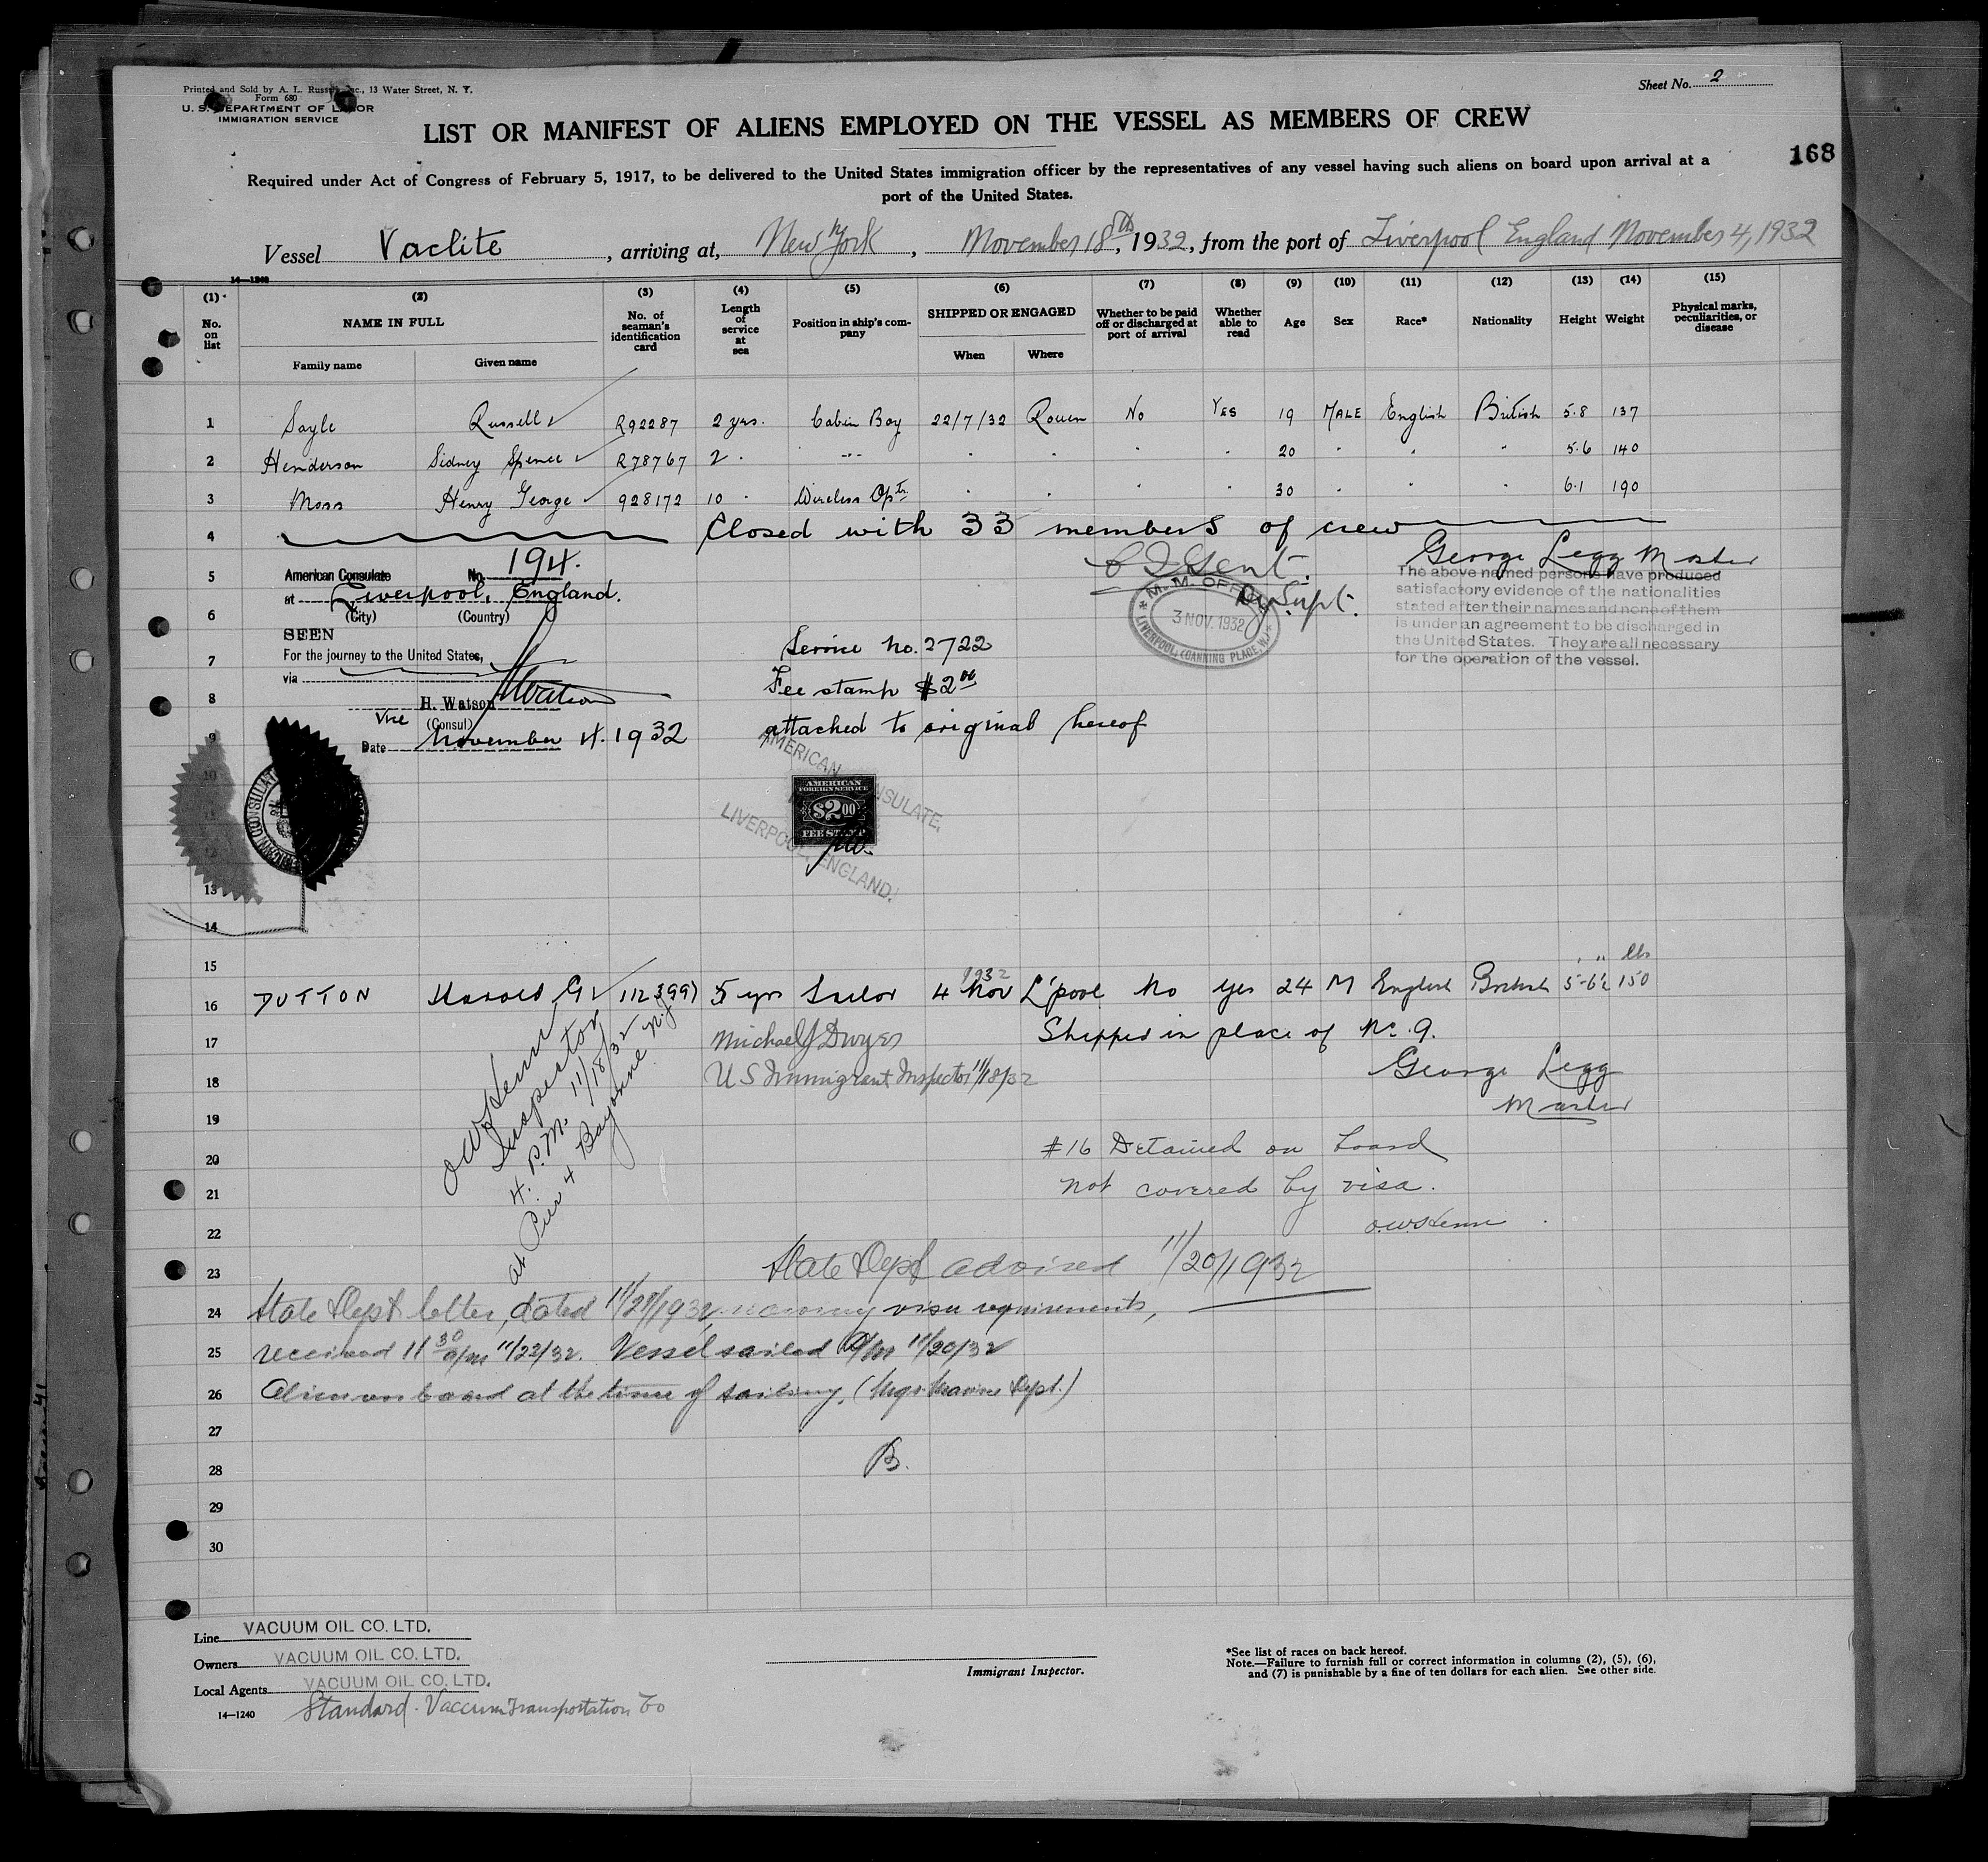 Printed and Sold by A. L. Russell, Inc., 13 Water Street, N. Y.
Form 680
U. S. DEPARTMENT OF LABOR
IMMIGRATION SERVICE
Sheet No. 2
LIST OR MANIFEST OF ALIENS EMPLOYED ON THE VESSEL AS MEMBERS OF CREW
168
Required under Act of Congress of February 5, 1917, to be delivered to the United States immigration officer by the representatives of any vessel having such aliens on board upon arrival at a
port of the United States.
Vessel Vaclite, arriving at, New York, November 18th, 1932, from the port of Liverpool England November 4, 1932
14—1240
(1) No. on list
(2) NAME IN FULL
Family name Given name
(3) No. of seaman's identification card
(4) Length of service at sea
(5) Position in ship's company
(6) SHIPPED OR ENGAGED
When Where
(7) Whether to be paid off or discharged at port of arrival
(8) Whether able to read
(9) Age
(10) Sex
(11) Race*
(12) Nationality
(13) Height
(14) Weight
(15) Physical marks, peculiarities, or disease
1 Sayle Russell R92287 2 yrs. Cabin Boy 22/7/32 Rouen No Yes 19 MALE English British 5.8 137
2 Henderson Sidney Spence R78767 2 " -"- " " " " 20 " " " 5.6 140
3 Moss Henry George 928172 10 " Wireless Optr. " " " " 30 " " " 6.1 190
4 Closed with 33 members of crew
George Legg Master
5 American Consulate No. 194.
at Liverpool, England.
6 (City) (Country)
SEEN
7 For the journey to the United States,
via
8 H. Watson
Vice (Consul)
9 Date November 4. 1932
Dy. Supt.
M. M. OFFICE
3 NOV. 1932
LIVERPOOL (CANNING PLACE, W.)
The above named persons have produced
satisfactory evidence of the nationalities
stated after their names and none of them
is under an agreement to be discharged in
the United States. They are all necessary
for the operation of the vessel.
Service No. 2722
Fee stamp $2.00
attached to original hereof
AMERICAN CONSULATE,
LIVERPOOL, ENGLAND.
AMERICAN
FOREIGN SERVICE
$2.00
FEE STAMP
10
11
12
13
14
15 ' " lbs
1932
16 DUTTON Harold G. 1123997 5 yrs Sailor 4 Nov L'pool No yes 24 M English British 5-6½ 150
17 Michael J Dwyer Shipped in place of No. 9.
18 U S Immigrant Inspector 11/18/32 George Legg
19 Master
Inspector
4. P.M. 11/18/32
at Pier 4 Bayonne N.J.
20 #16 Detained on board
21 not covered by visa.
22
23 State Dept advised 11/20/1932
24 State Dept letter, dated 11/21/1932, visa requirements,
25 received 11 30 a/m 11/22/32. Vessel sailed a/m 11/20/32
26 Alien on board at the time of sailing. (Mgr. Marine Dept.)
27
28 B.
29
30
Line VACUUM OIL CO. LTD.
Owners VACUUM OIL CO. LTD.
Local Agents VACUUM OIL CO. LTD.
14—1240 Standard-Vaccum Transportation Co
Immigrant Inspector.
*See list of races on back hereof.
Note.—Failure to furnish full or correct information in columns (2), (5), (6),
and (7) is punishable by a fine of ten dollars for each alien. See other side.